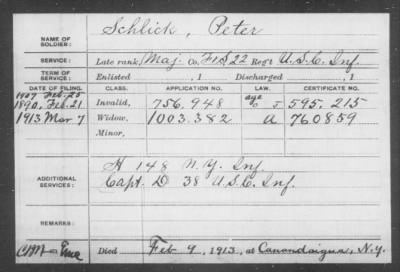 NAME OF SOLDIER: Schlick, Peter
SERVICE: Late rank, Maj. Co. F&S 22 Reg't U.S.C. Inf.
TERM OF SERVICE: Enlisted , 1 Discharged , 1
DATE OF FILING. CLASS. APPLICATION NO. LAW. CERTIFICATE NO.
1907 Feb. 25
1890, Feb. 21 Invalid, 756,948 J 595,215
1913 Mar 7 Widow, 1003.382 a 760859
Minor,
ADDITIONAL SERVICES: H 148 N.Y. Inf.
Capt. D 38 U.S.C. Inf.
REMARKS:
Died Feb 9, 1913, at Canandaigua, N.Y.